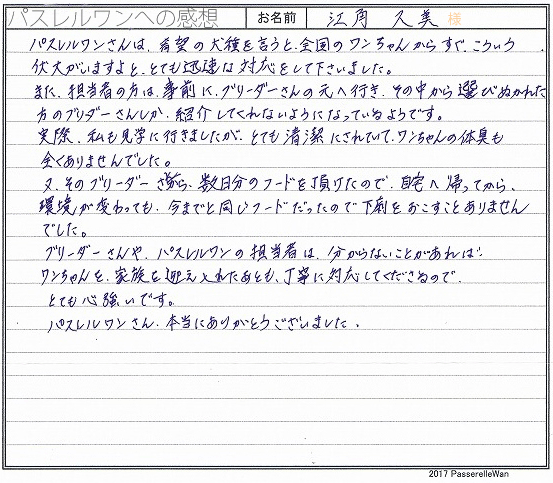 パスレルワンへの感想 お名前 江角 久美 様
パスレルワンさんは、希望の犬種を言うと、全国のワンちゃんからすぐ、こういう
伏犬がいますよと、とても迅速な対応をして下さいました。
また、担当者の方は、事前に、ブリーダーさんの元へ行き、その中から選びぬかれた
方のブリダーさんしか、紹介してくれないようになっているようです。
実際、私も見学に行きましたが、とても清潔にされていて、ワンちゃんの体臭も
全くありませんでした。
又、そのブリーダーさんから、数日分のフードを頂けたので、自宅へ帰ってから、
環境が変わっても、今までと同じフードだったので下痢をおこすことありません
でした。
ブリーダーさんや、パスレルワンの担当者は、分からないことがあれば
ワンちゃんを、家族を迎え入れたあとも、丁寧に対応してくださるので、
とても心強いです。
パスレルワンさん、本当にありがとうございました。
2017 PasserelleWan